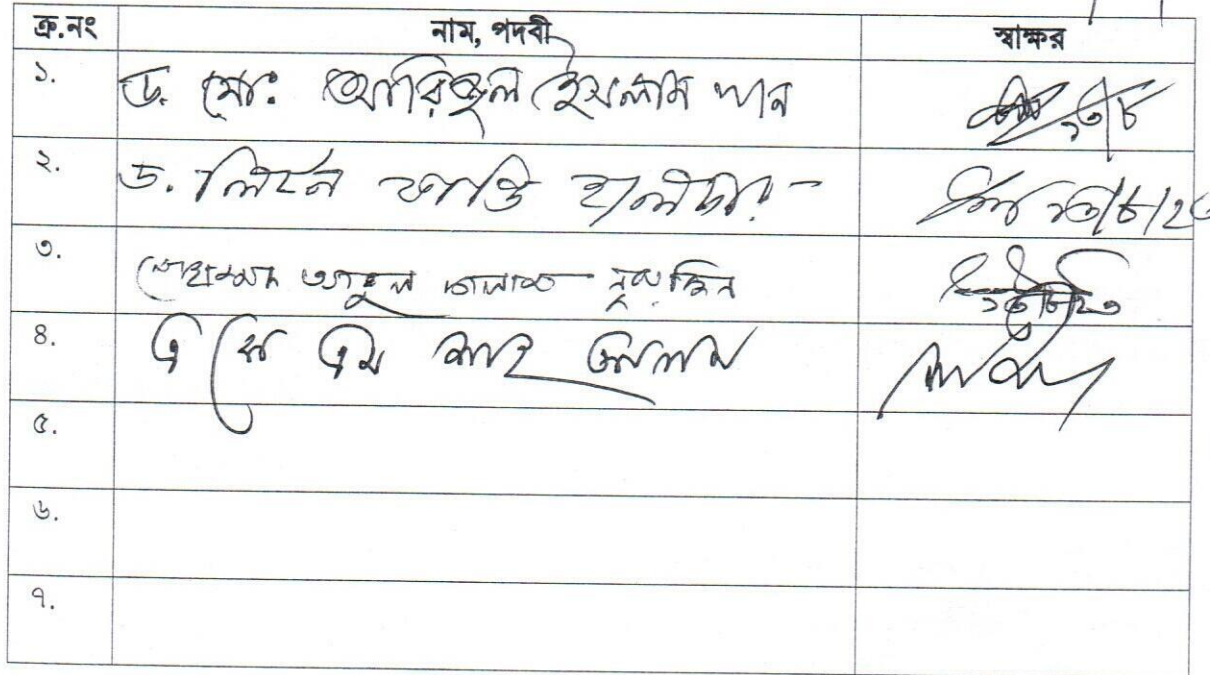 ক্র.নং নাম, পদবী স্বাক্ষর
১. ড. মো: আরিফুল ইসলাম খান ১৩/৮
২. ড. লিটন কান্তি হালদার ১৩/৮/২৩
৩. মোহাম্মদ আবুল কালাম ১৩/৮/২৩
৪. এ কে এম শাহ আলম
৫.
৬.
৭.